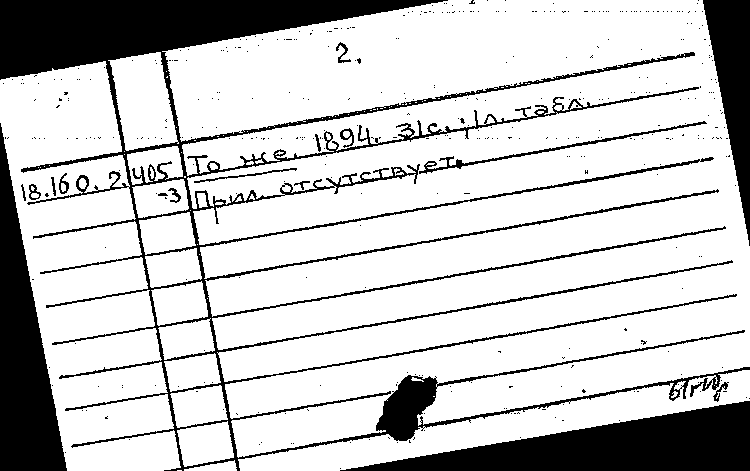 2.
18.160.2.405 То же. 1894. 31с.; 1л. табл.
-3 Прил. отсутствует.